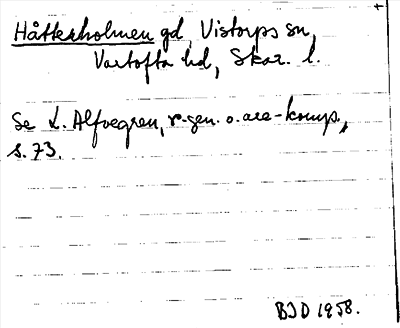 Håtterholmen gd, Vistorps sn,
Vartofta hd, Skar. l.
Se L. Alfvegren, r-gen. o. are-komp.,
s. 73.
BJD 1958.